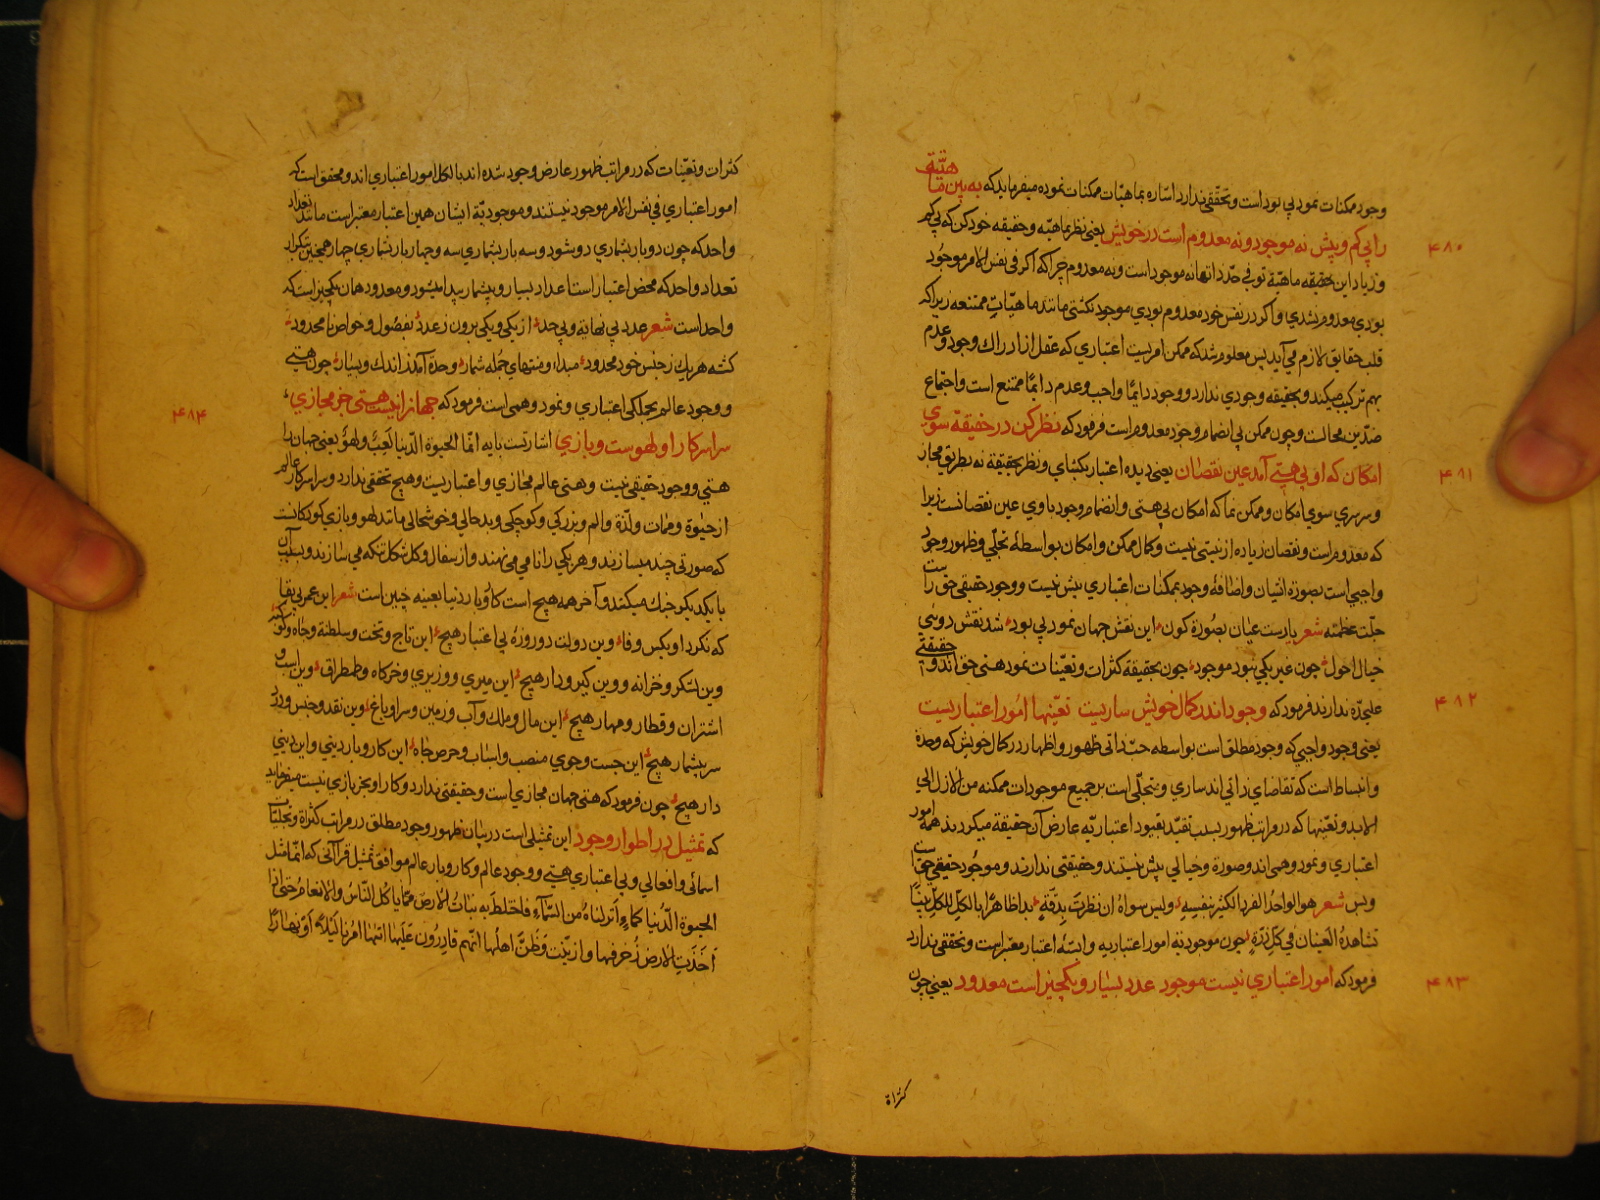 وجود ممکنات نمود بی بود است و تحققی ندارد اشاره بماهیات ممکنات نموده میفرماید که به بین ماهیته
۴۸۰
را بی کم و بیش نه موجود و نه معدوم است در خویش یعنی نظر بماهیه و حقیقه خود کن که بی کم
و زیاد این حقیقه ماهیة تو فی حد ذاتها نه موجود است و نه معدوم چرا که اکر فی نفس الامر موجود
بودی معدوم نشدی و اکر در نفس خود معدوم بودی موجود نکشتی مانند ماهیات ممتنعه زیرا که
قلب حقایق لازم می آید پس معلوم شد که ممکن امریست اعتباری که عقل از ادراک وجود و عدم
بهم ترکیب میکند و بحقیقه وجودی ندارد و وجود دایما واجب و عدم دایما ممتنع است و اجتماع
ضدین محالست و چون ممکن بی انضمام وجود معدوم است فرمود که نظر کن در حقیقة سوی
۴۸۱
امکان که او بی هستی آمد عین نقصان یعنی دیده اعتبار بکشای و نظر بحقیقة نه بطریق مجاز
و سرسری سوی امکان و ممکن نما که امکان بی هستی و انضمام وجود باوی عین نقصانست زیرا
که معدوم است و نقصان زیاده از نیستی نیست و کمال ممکن و امکان بواسطه تجلی و ظهور وجود
واجبی است بصورة انشیان و اضافه وجود بممکنات اعتباری بیش نیست و وجود حقیقی حق راست
جلت عظمته شعر یارست عیان بصورة کون این نقش جهان نمود بی بود شد نقش دوئی
خیال احول چون غیر یکی نبود موجود چون بحقیقة کثرات و تعینات نمود هستی حق اند و حقیقتی
۴۸۲
علیحده ندارند فرمود که وجود اندر کمال خویش ساریست تعینها امور اعتباریست
یعنی وجود واجبی که وجود مطلق است بواسطه حب ذاتی ظهور و اظهار در کمال خویش که وحدة
و انبساط است که تقاضای ذاتی اند ساری و متجلی است بر جمیع موجودات ممکنه من الازل الی
الابد و تعینها که در مراتب ظهور بسبب تقید بقیود اعتباریه عارض آن حقیقة میکردند همه امور
اعتباری و نمود وهمی اند و صورة و خیالی بیش نیستند و حقیقتی ندارند و موجود حقیقی حق است
و بس شعر هو الواحد الفرد الکثیر بنفسه ولیس سواه ان نظرت بدقة بدا ظاهرا بالکل للکل بینا
تشاهده العینان فی کل ذرة چون موجودیة امور اعتباریه وابسته اعتبار معتبر است و تحققی ندارد
۴۸۳
فرمود که امور اعتباری نیست موجود عدد بسیار و یک چیز است معدود یعنی چون
کثراة
کثرات و تعینات که در مراتب ظهور عارض وجود شده اند بالکل امور اعتباری اند و محقق است که
امور اعتباری فی نفس الامر موجود نیستند و موجودیة ایشان همین اعتبار معتبر است مانند تعداد
واحد که چون دو بار بشماری دو شود و سه بار بشماری سه و چهار بار بشماری چهار همچنین بتکرار
تعداد واحد که محض اعتبار است اعداد بسیار و بیشمار پیدا میشود و معدود همان یک چیز است که
واحد است شعر عدد بی نهایة و بی حد از یکی و یکی برون ز عدد بفصول و خواص نامحدود
کشته هر یک ز جنس خود محدود مبدا و منتهای جمله شمار وحدة آمد ز اندک و بسیار چون هستی
۴۸۴
و وجود عالم بجلکی اعتباری و نمود وهمی است فرمود که جهانرا نیست هستی جز مجازی
سراسر کار او لهوست و بازی اشارتست بایه انما الحیوة الدنیا لعب و لهو یعنی جهان را
هستی و وجود حقیقی نیست و هستی عالم مجازی و اعتباریست و هیچ تحققی ندارد و سراسر کار عالم
از حیوة و ممات و لذة و الم و بزرکی و کوچکی و بدحالی و خوشحالی مانند لهو و بازی کودکانست
که صورتی چند میسازند و هر یکی را نامی می نهند و از سفال و کل شکل تنکه می سازند و بسبب آن
با یکدیکر جنک میکنند و آخر همه هیچ است کاروبار دنیا بعینه چنین است شعر این عمر بی بقا
که نکرد او بکس وفا وین دولت دوروزه بی اعتبار هیچ این تاج و تخت و سلطنة و جاه و کر و فر
وین لشکر و خزانه و وین کیرودار هیچ این میری و وزیری و خرکاه و طمطراق وین اسب و
اشتران و قطار و مهار هیچ این مال و ملک و آب و زمین و سرا و باغ وین نقد و جنس و زر
سر بشمار هیچ این جست و جوی منصب و اسباب و حرص جاه این کار و بار دینی و این دینی
دار هیچ چون فرمود که هستی جهان مجازی است و حقیقتی ندارد و کار او بجز بازی نیست میفرماید
که تمثیل در اطوار وجود این تمثیلی است در بیان ظهور وجود مطلق در مراتب کثراة و تجلیات
اسمائی و افعالی و بی اعتباری هستی و وجود عالم و کاروبار عالم موافق تمثیل قرآنی که انما مثل
الحیوة الدنیا کماء انزلناه من السماء فاختلط به نبات الارض مما یاکل الناس والانعام حتی اذا
اخذت الارض زخرفها وازینت وظن اهلها انهم قادرون علیها اتیها امرنا لیلا او نهارا